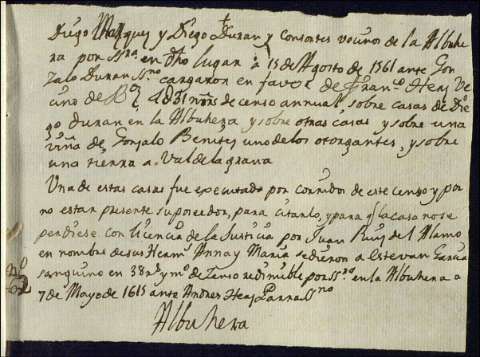 Diego Marquez y Diego Duran y consortes vecinos de la Albuhe
ra por ssra en dho lugar a 15 de Agosto de 1561 ante Gon
zalo Duran ssno cargaron en favor de Franco Herz Ve
cino de de censo annual sobre casas de Die
go duran en la Albuhera y sobre otras casas y sobre una
viña de Gonzalo Benitez uno de los otorgantes, y sobre
una tierra a Val de la grana
Una de estas casas fue executada por corridos de este censo y por
no estar presente su poseedor, para citarlo, y para q la casa no se
perdiese con licencia de la Justicia por Juan Ruiz del Alamo
en nombre de sus Herms Anna y Maria se dieron a Estevan Garcia
sanguino en de Censo redimible por ssra en la Albuhera a
7 de Mayo de 1615 ante Andres Herz Parra ssno
Albuhera